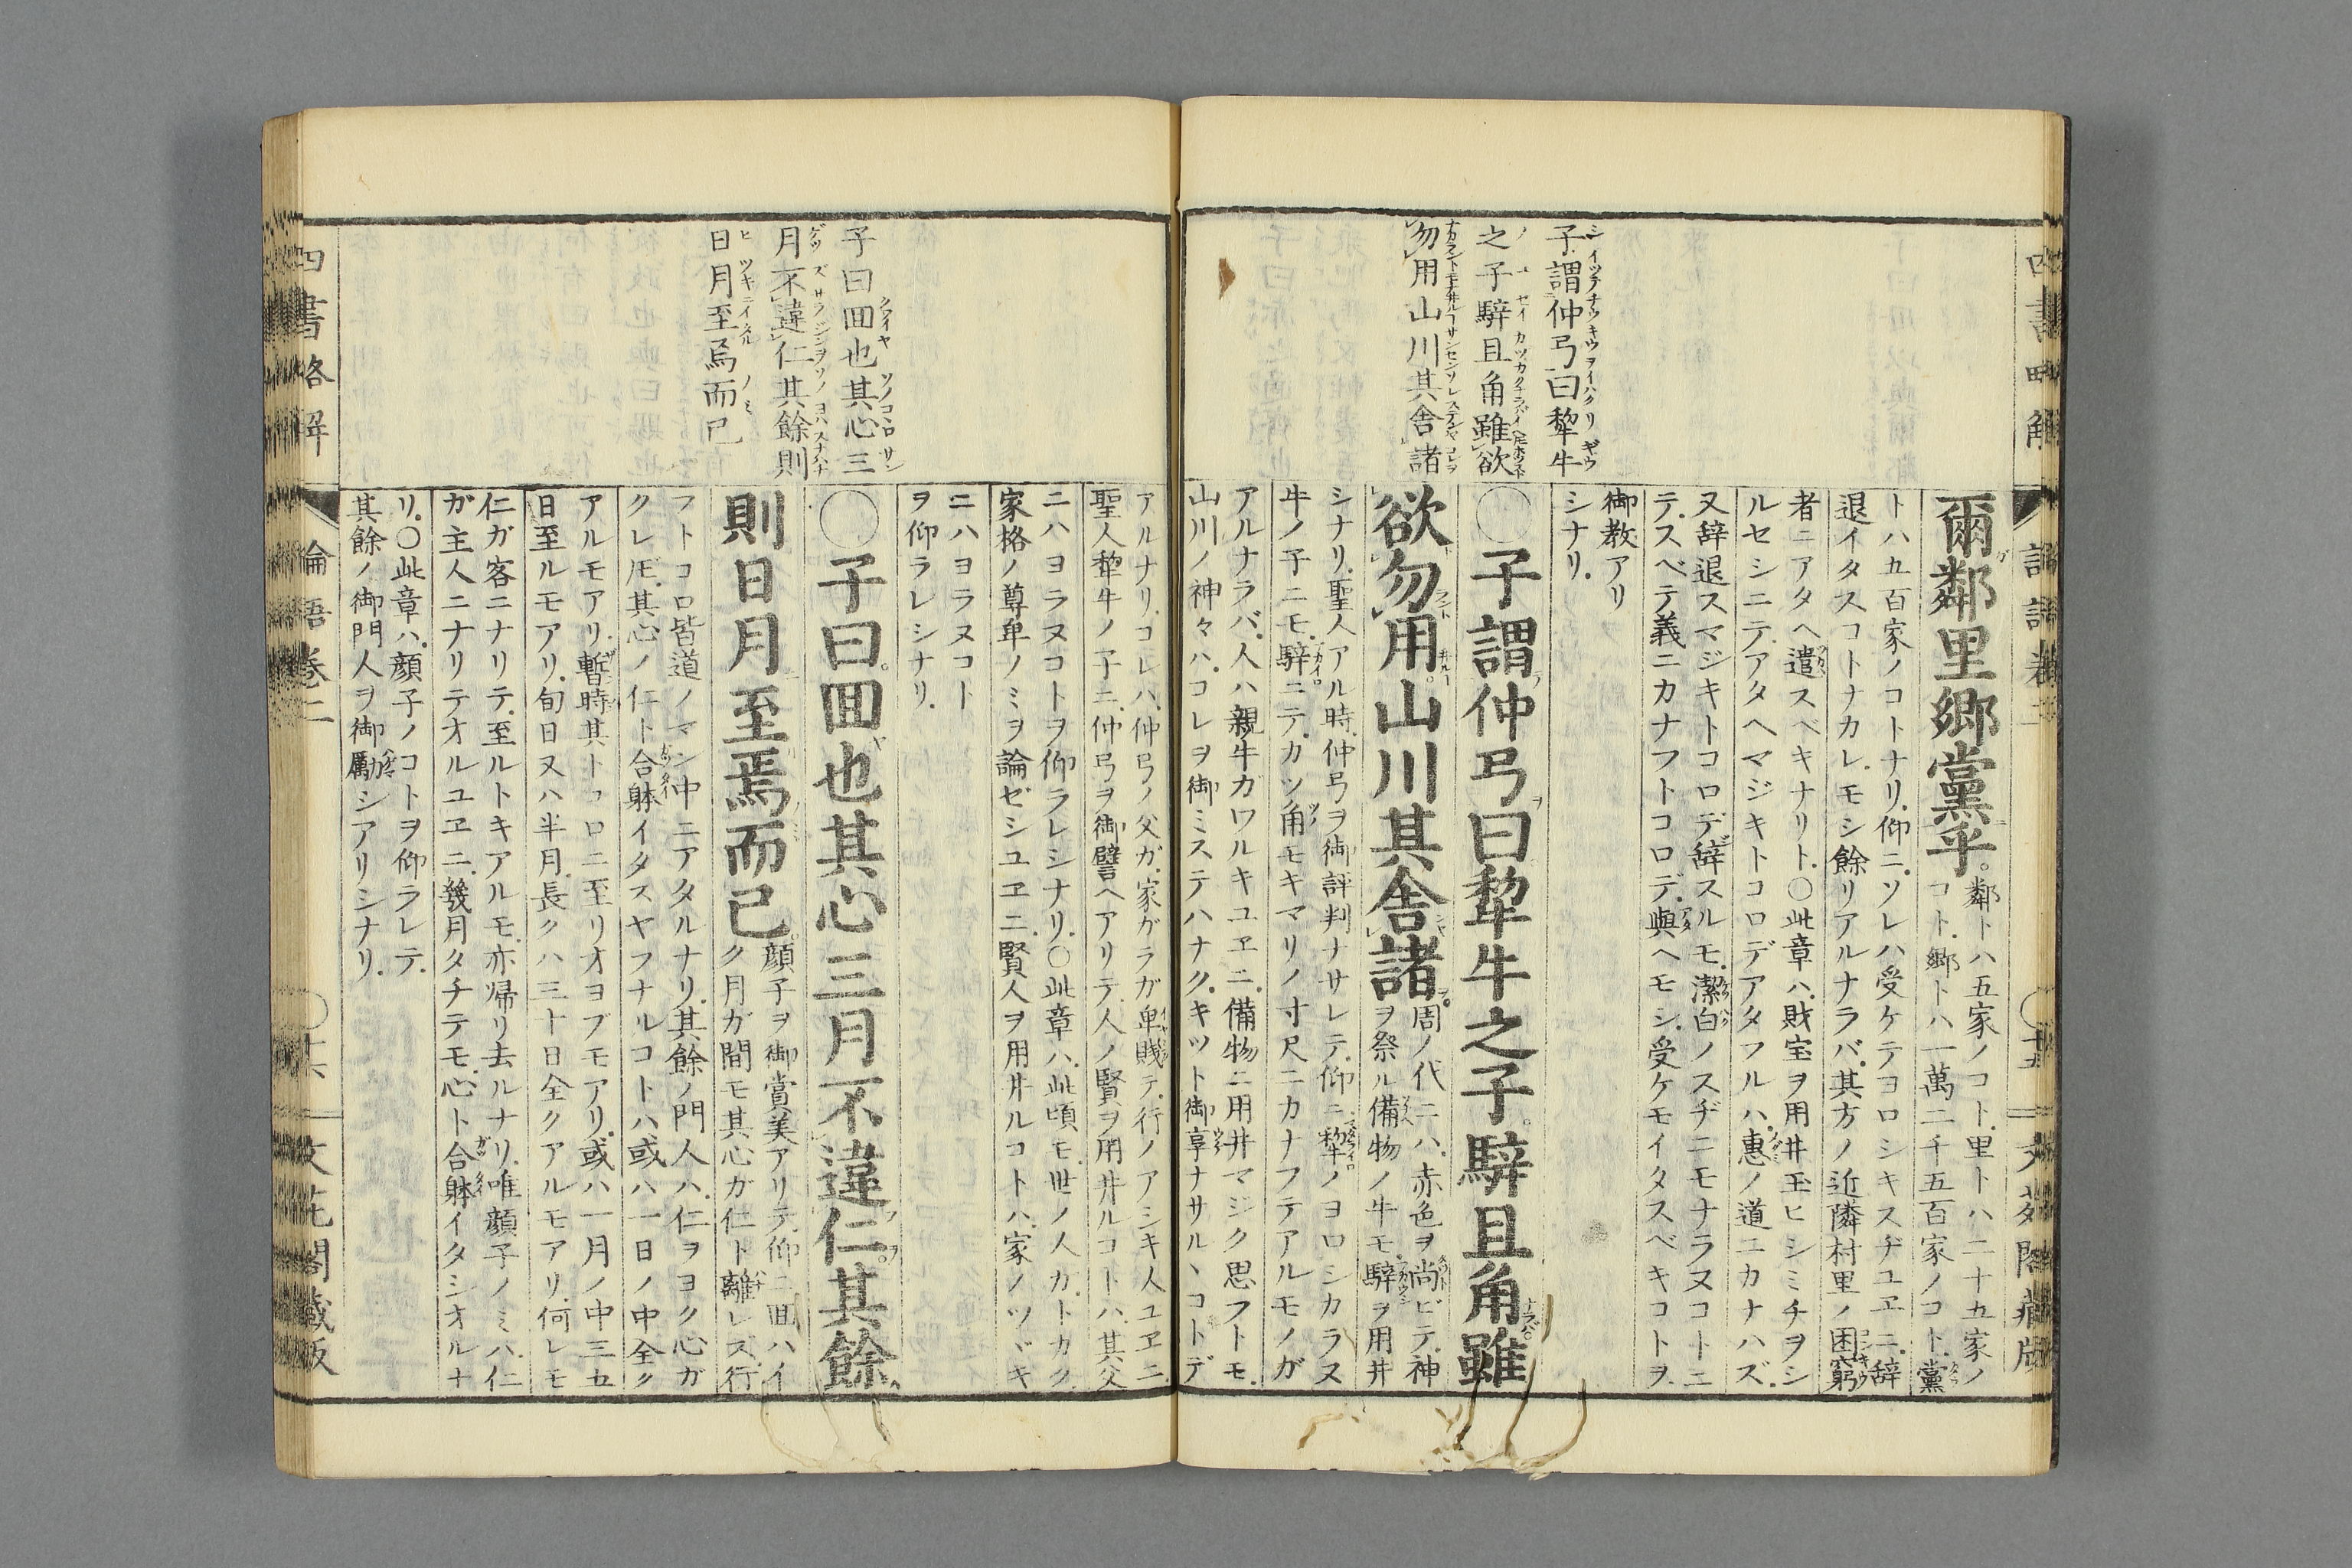 四書略解
論語卷二
〇十五
文花閣藏版
子謂仲弓曰犂牛
之子騂且角雖欲
勿用山川其舍諸
爾鄰里鄉黨乎。
鄰トハ五家ノコト.里トハ二十五家ノ
コト.鄉トハ一萬二千五百家ノコト.黨
トハ五百家ノコトナリ.仰ニ.ソレハ受ケテヨロシキスヂユヱニ.辞
退イタスコトナカレ.モシ餘リアルナラバ.其方ノ近隣村里ノ困窮
者ニアタヘ遣スベキナリト.〇此章ハ.財宝ヲ用井玉ヒシミチヲシ
ルセシニテ.アタヘマジキトコロデアタフルハ.惠ノ道ニカナハズ.
又辞退スマジキトコロデ辞スルモ.潔白ノスヂニモナラヌコトニ
テ.スベテ義ニカナフトコロデ.與ヘモシ.受ケモイタスベキコトヲ.
御教アリ
シナリ.
〇子謂仲弓曰犂牛之子。騂且角雖
欲勿用。山川其舍諸。
周ノ代ニハ.赤色ヲ尚ビテ.神
ヲ祭ル備物ノ牛モ.騂ヲ用井
シナリ.聖人アル時.仲弓ヲ御評判ナサレテ.仰ニ.犂ノヨロシカラヌ
牛ノ子ニモ.騂ニテ.カツ角モキマリノ寸尺ニカナフテアルモノガ
アルナラバ.人ハ親牛ガワルキユヱニ.備物ニ用井マジク思フトモ.
山川ノ神々ハ.コレヲ御ミステハナク.キツト御享ナサル丶コトデ
アルナリ.コレハ.仲弓ノ父ガ.家ガラガ卑賤テ.行ノアシキ人ユヱニ.
聖人犂牛ノ子ニ.仲弓ヲ御譬ヘアリテ.人ノ賢ヲ用井ルコトハ.其父
ニハヨラヌコトヲ仰ラレシナリ.〇此章ハ.此頃モ.世ノ人ガ.トカク.
家格ノ尊卑ノミヲ論ゼシユヱニ.賢人ヲ用井ルコトハ.家ノツヾキ
ニハヨラヌコト
ヲ仰ラレシナリ.
子曰回也其心三
月不違仁其餘則
日月至焉而已
〇子曰。回也其心三月不違仁。其餘
則日月至焉而已。
顔子ヲ御賞美アリテ.仰ニ回ハイ
ク月ガ間モ其心ガ仁ト離レズ.行
フトコロ皆道ノマン中ニアタルナリ.其餘ノ門人ハ.仁ヲヨク心ガ
クレ𪜈.其心ノ仁ト合躰イタスヤフナルコトハ.或ハ一日ノ中全ク
アルモアリ.暫時其トコロニ至リオヨブモアリ.或ハ一月ノ中三五
日至ルモアリ.旬日又ハ半月.長クハ三十日全クアルモアリ.何レモ
仁ガ客ニナリテ.至ルトキアルモ.亦帰リ去ルナリ.唯顔子ノミハ.仁
ガ主人ニナリテオルユヱニ.幾月タチテモ.心ト合躰イタシオルナ
リ.〇此章ハ.顔子ノコトヲ仰ラレテ.
其餘ノ御門人ヲ御勵シアリシナリ.
四書略解
論語卷二
〇十六
文花閣藏版